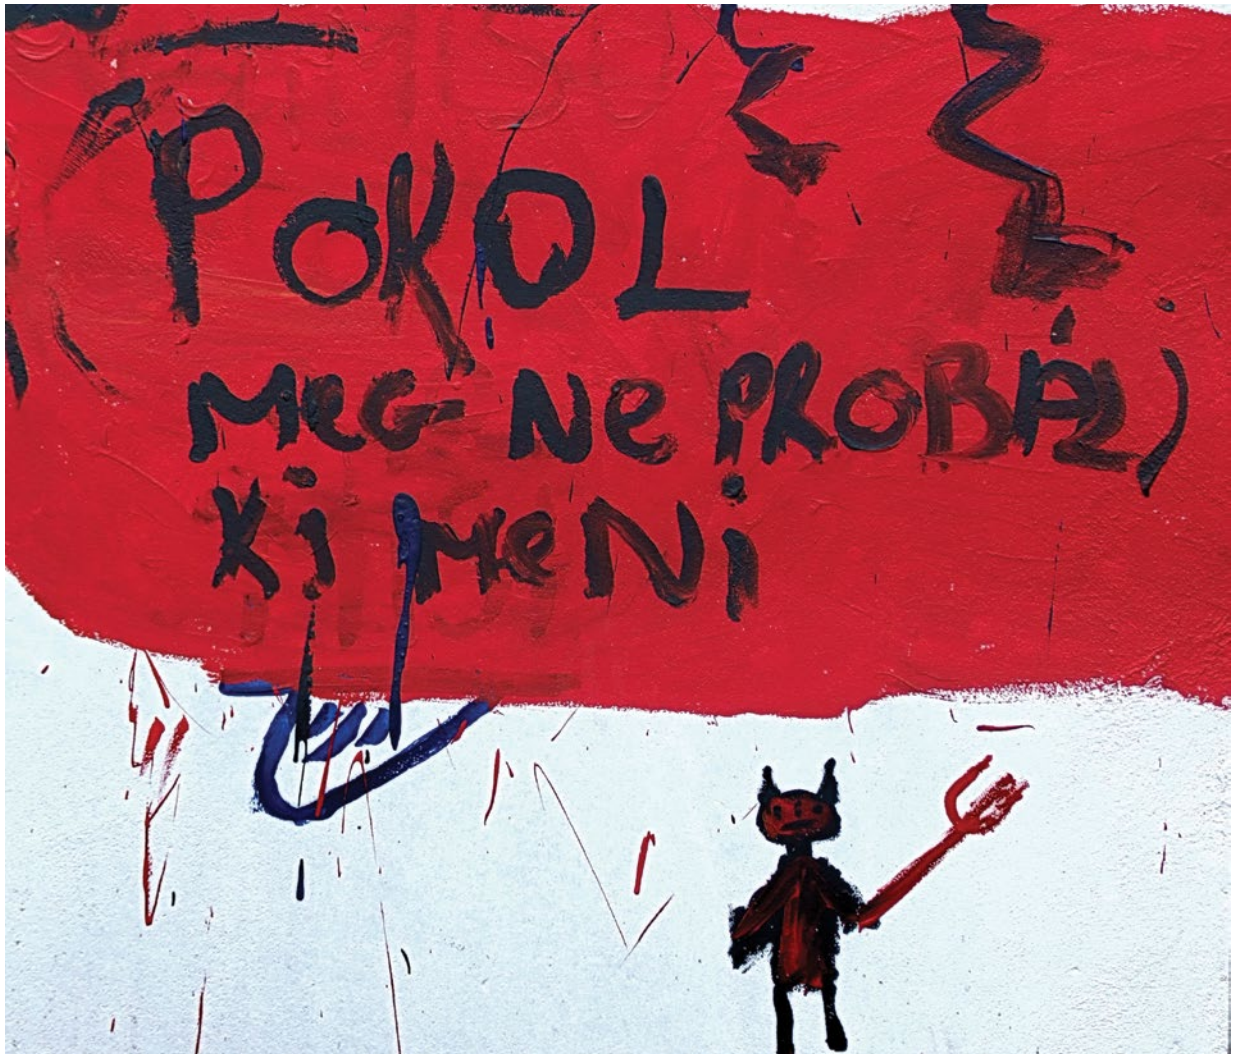 POKOL
MeG Ne PROBÁLj
Ki MeNi